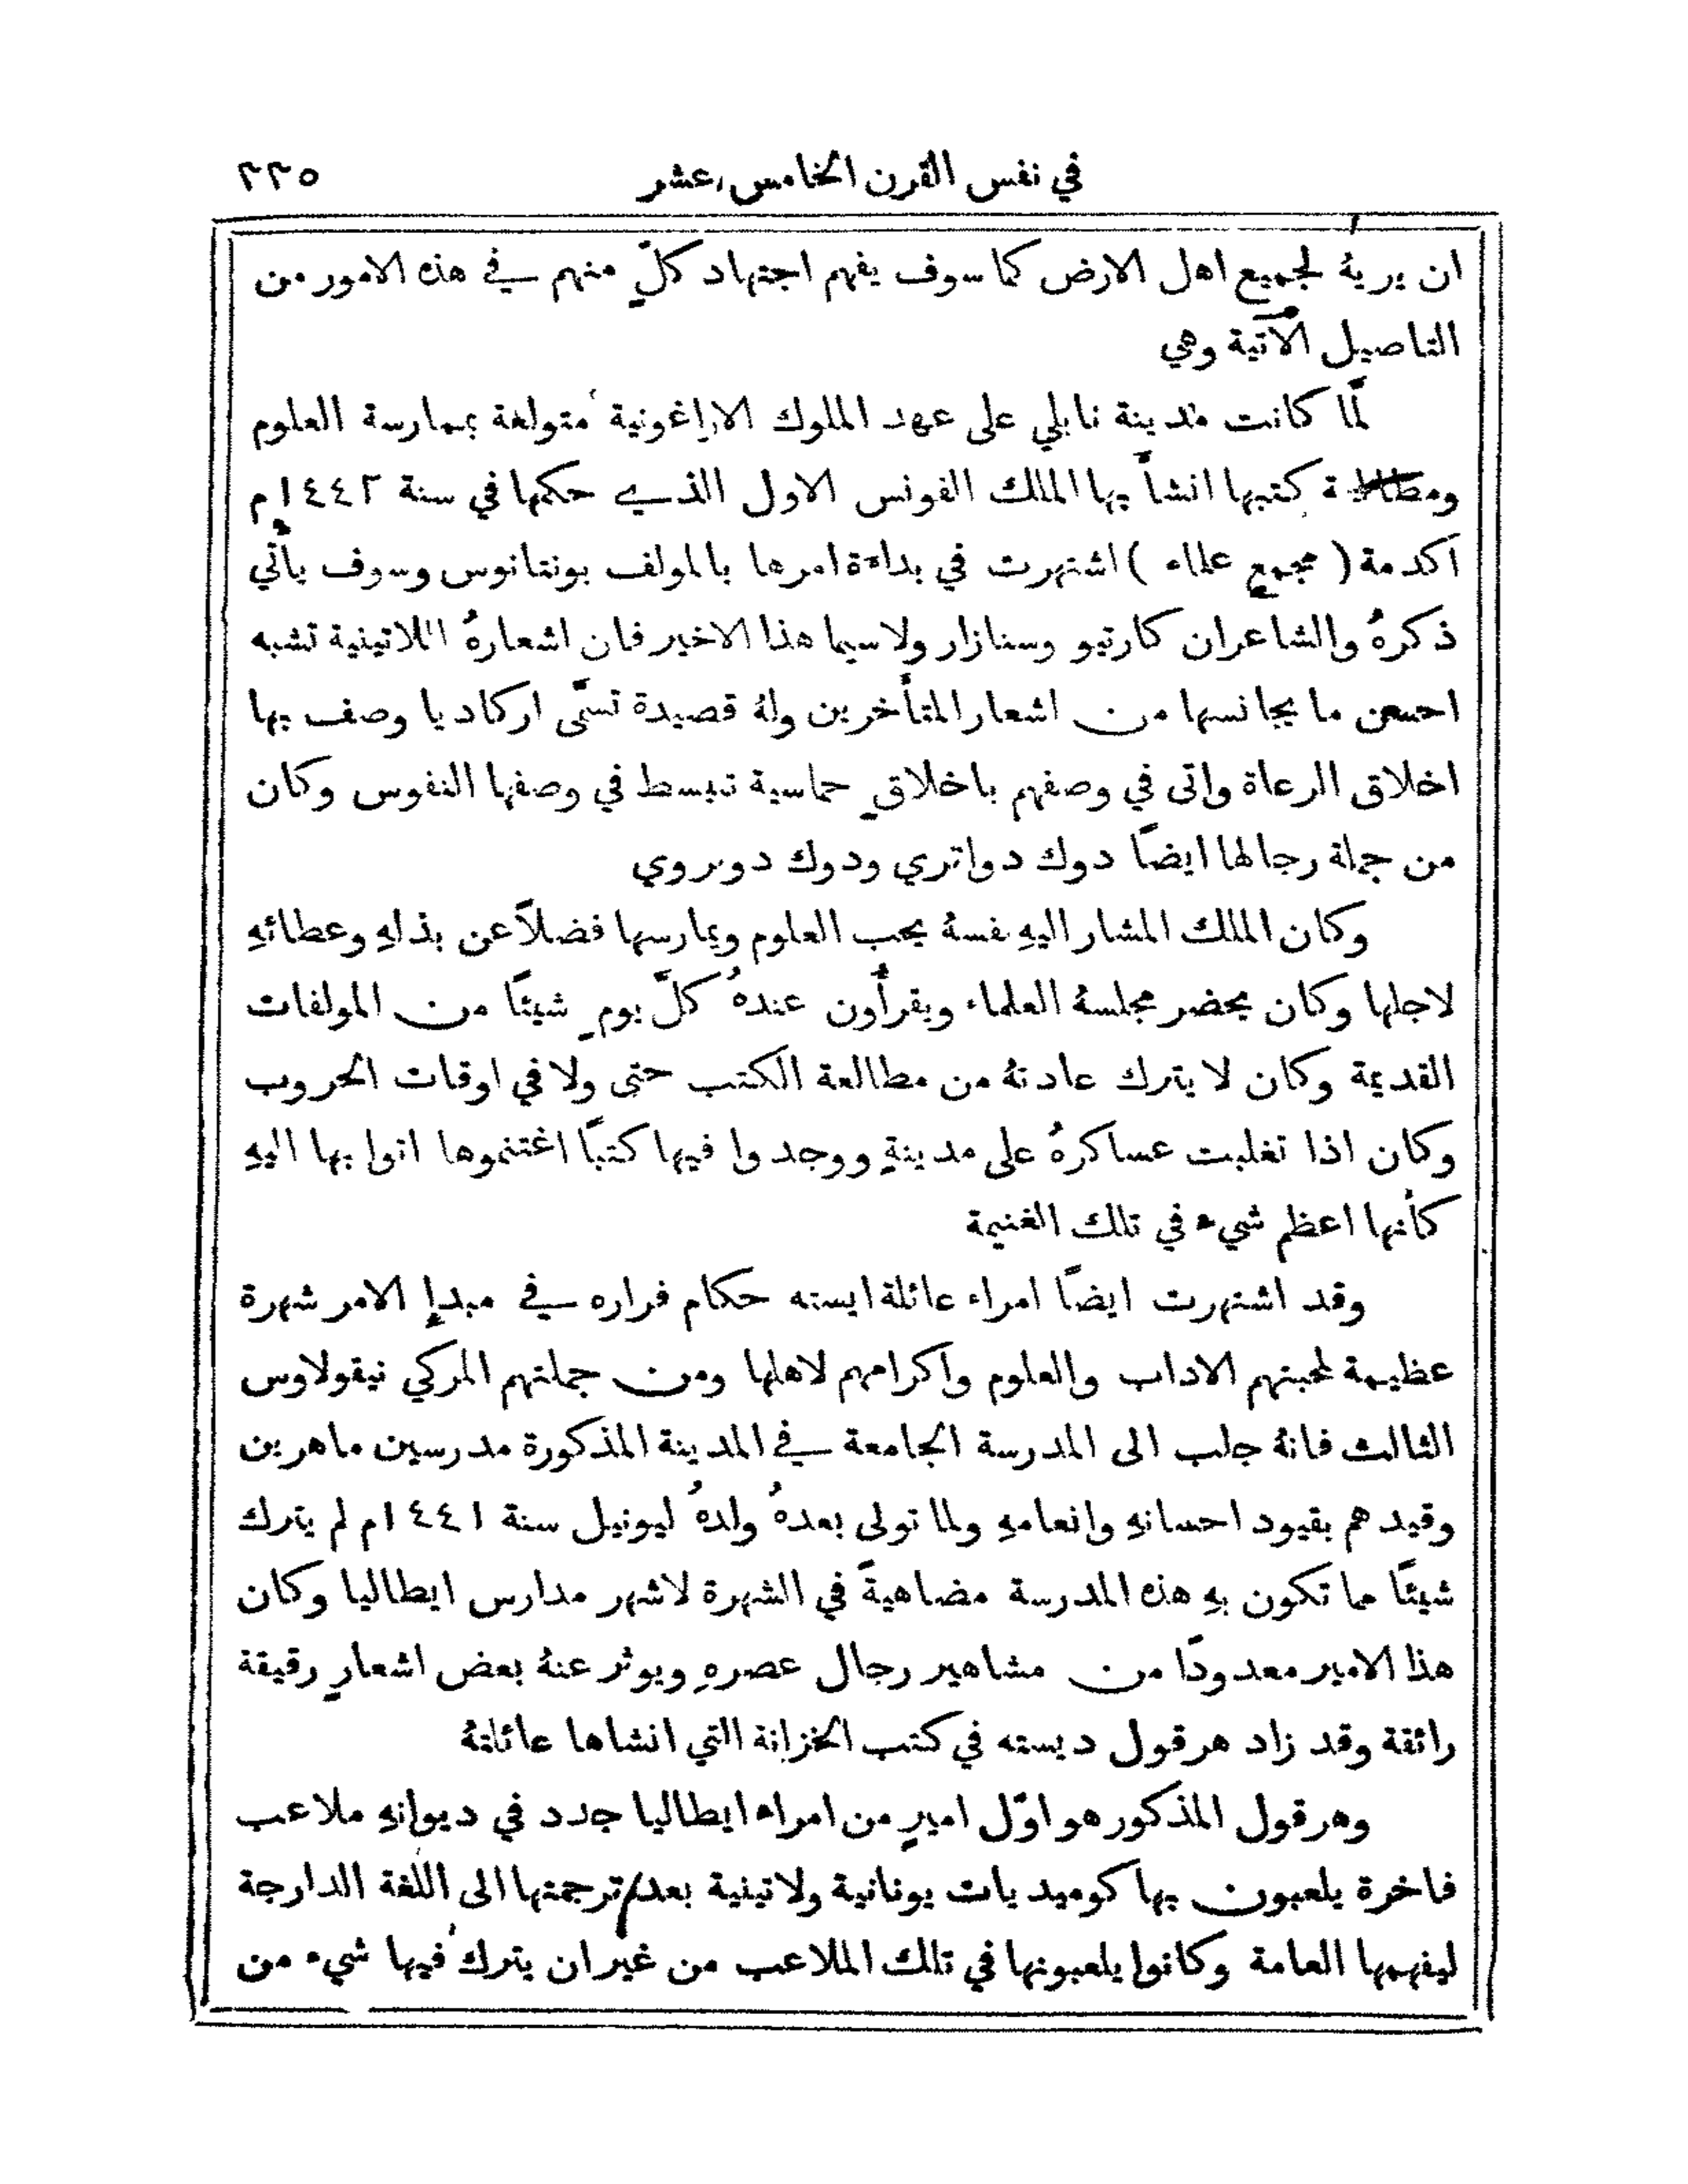 في نفس القرن الخامس عشر ٢٢٥
ان يريهُ لجميع اهل الارض كما سوف يفهم اجتهاد كلٍّ منهم في هذه الامور من
التاصيل الآتية وهي
لمَّا كانت مدينة نابلي على عهد الملوك الاراغونية متولعة بممارسة العلوم
ومطالعة كتبها انشأ بها الملك الفونس الاول الذي حكمها في سنة ١٤٤٢م
اكدمة (مجمع علماء) اشتهرت في بداءة امرها بالمولف بونتانوس وسوف يأتي
ذكرهُ والشاعران كارتيو وسنازار ولاسيما هذا الاخير فان اشعارهُ اللاتينية تشبه
احسن ما يجانسها من اشعار المتأخرين ولهُ قصيدة تسمَّى اركاديا وصف بها
اخلاق الرعاة واتى في وصفهم باخلاقٍ حماسية تنبسط في وصفها النفوس وكان
من جملة رجالها ايضًا دوك دواتري ودوك دوبروي
وكان الملك المشار اليهِ نفسهُ يحب العلوم ويمارسها فضلاً عن بذلهِ وعطائهِ
لاجلها وكان يحضر مجلسهُ العلماء ويقرأون عندهُ كلَّ يومٍ شيئًا من المولفات
القديمة وكان لا يترك عادتهُ من مطالعة الكتب حتى ولا في اوقات الحروب
وكان اذا تغلبت عساكرهُ على مدينةٍ ووجدوا فيها كتبًا اغتنموها اتوا بها اليهِ
كأنها اعظم شيء في تلك الغنيمة
وقد اشتهرت ايضًا امراء عائلة ايسته حكام فراره في مبدإ الامر شهرة
عظيمة لمحبتهم الاداب والعلوم واكرامهم لاهلها ومن جملتهم المركي نيقولاوس
الثالث فانهُ جلب الى المدرسة الجامعة في المدينة المذكورة مدرسين ماهرين
وقيدهم بقيود احسانهِ وانعامهِ ولما تولى بعدهُ ولدهُ ليونيل سنة ١٤٤١م لم يترك
شيئًا مما تكون بهِ هذه المدرسة مضاهيةً في الشهرة لاشهر مدارس ايطاليا وكان
هذا الامير معدودًا من مشاهير رجال عصرهِ ويوثر عنهُ بعض اشعارٍ رقيقة
رائقة وقد زاد هرقول ديسته في كتب الخزانة التي انشاها عائلتهُ
وهرقول المذكور هو اوَّل اميرٍ من امراء ايطاليا جدد في ديوانهِ ملاعب
فاخرة يلعبون بها كوميديات يونانية ولاتينية بعد ترجمتها الى اللغة الدارجة
ليفهمها العامة وكانوا يلعبونها في تلك الملاعب من غير ان يترك فيها شيء من